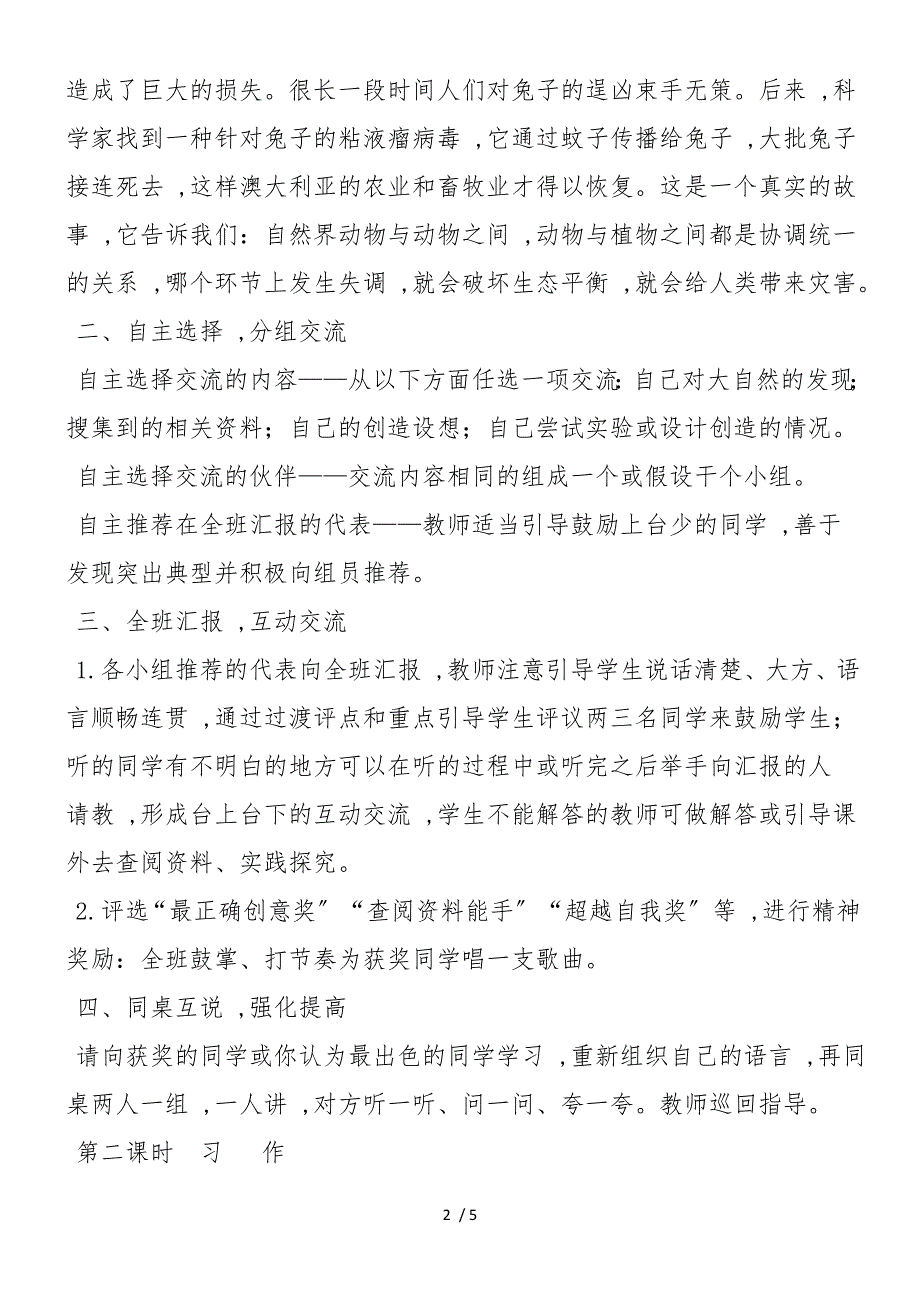 造成了巨大的损失。很长一段时间人们对兔子的逞凶束手无策。后来 ,科
学家找到一种针对兔子的粘液瘤病毒 ,它通过蚊子传播给兔子 ,大批兔子
接连死去 ,这样澳大利亚的农业和畜牧业才得以恢复。这是一个真实的故
事 ,它告诉我们：自然界动物与动物之间 ,动物与植物之间都是协调统一
的关系 ,哪个环节上发生失调 ,就会破坏生态平衡 ,就会给人类带来灾害。
二、自主选择 ,分组交流
自主选择交流的内容——从以下方面任选一项交流：自己对大自然的发现；
搜集到的相关资料；自己的创造设想；自己尝试实验或设计创造的情况。
自主选择交流的伙伴——交流内容相同的组成一个或假设干个小组。
自主推荐在全班汇报的代表——教师适当引导鼓励上台少的同学 ,善于
发现突出典型并积极向组员推荐。
三、全班汇报 ,互动交流
1.各小组推荐的代表向全班汇报 ,教师注意引导学生说话清楚、大方、语
言顺畅连贯 ,通过过渡评点和重点引导学生评议两三名同学来鼓励学生；
听的同学有不明白的地方可以在听的过程中或听完之后举手向汇报的人
请教 ,形成台上台下的互动交流 ,学生不能解答的教师可做解答或引导课
外去查阅资料、实践探究。
2.评选“最正确创意奖〞“查阅资料能手〞“超越自我奖〞等 ,进行精神
奖励：全班鼓掌、打节奏为获奖同学唱一支歌曲。
四、同桌互说 ,强化提高
请向获奖的同学或你认为最出色的同学学习 ,重新组织自己的语言 ,再同
桌两人一组 ,一人讲 ,对方听一听、问一问、夸一夸。教师巡回指导。
第二课时 习 作
2 / 5